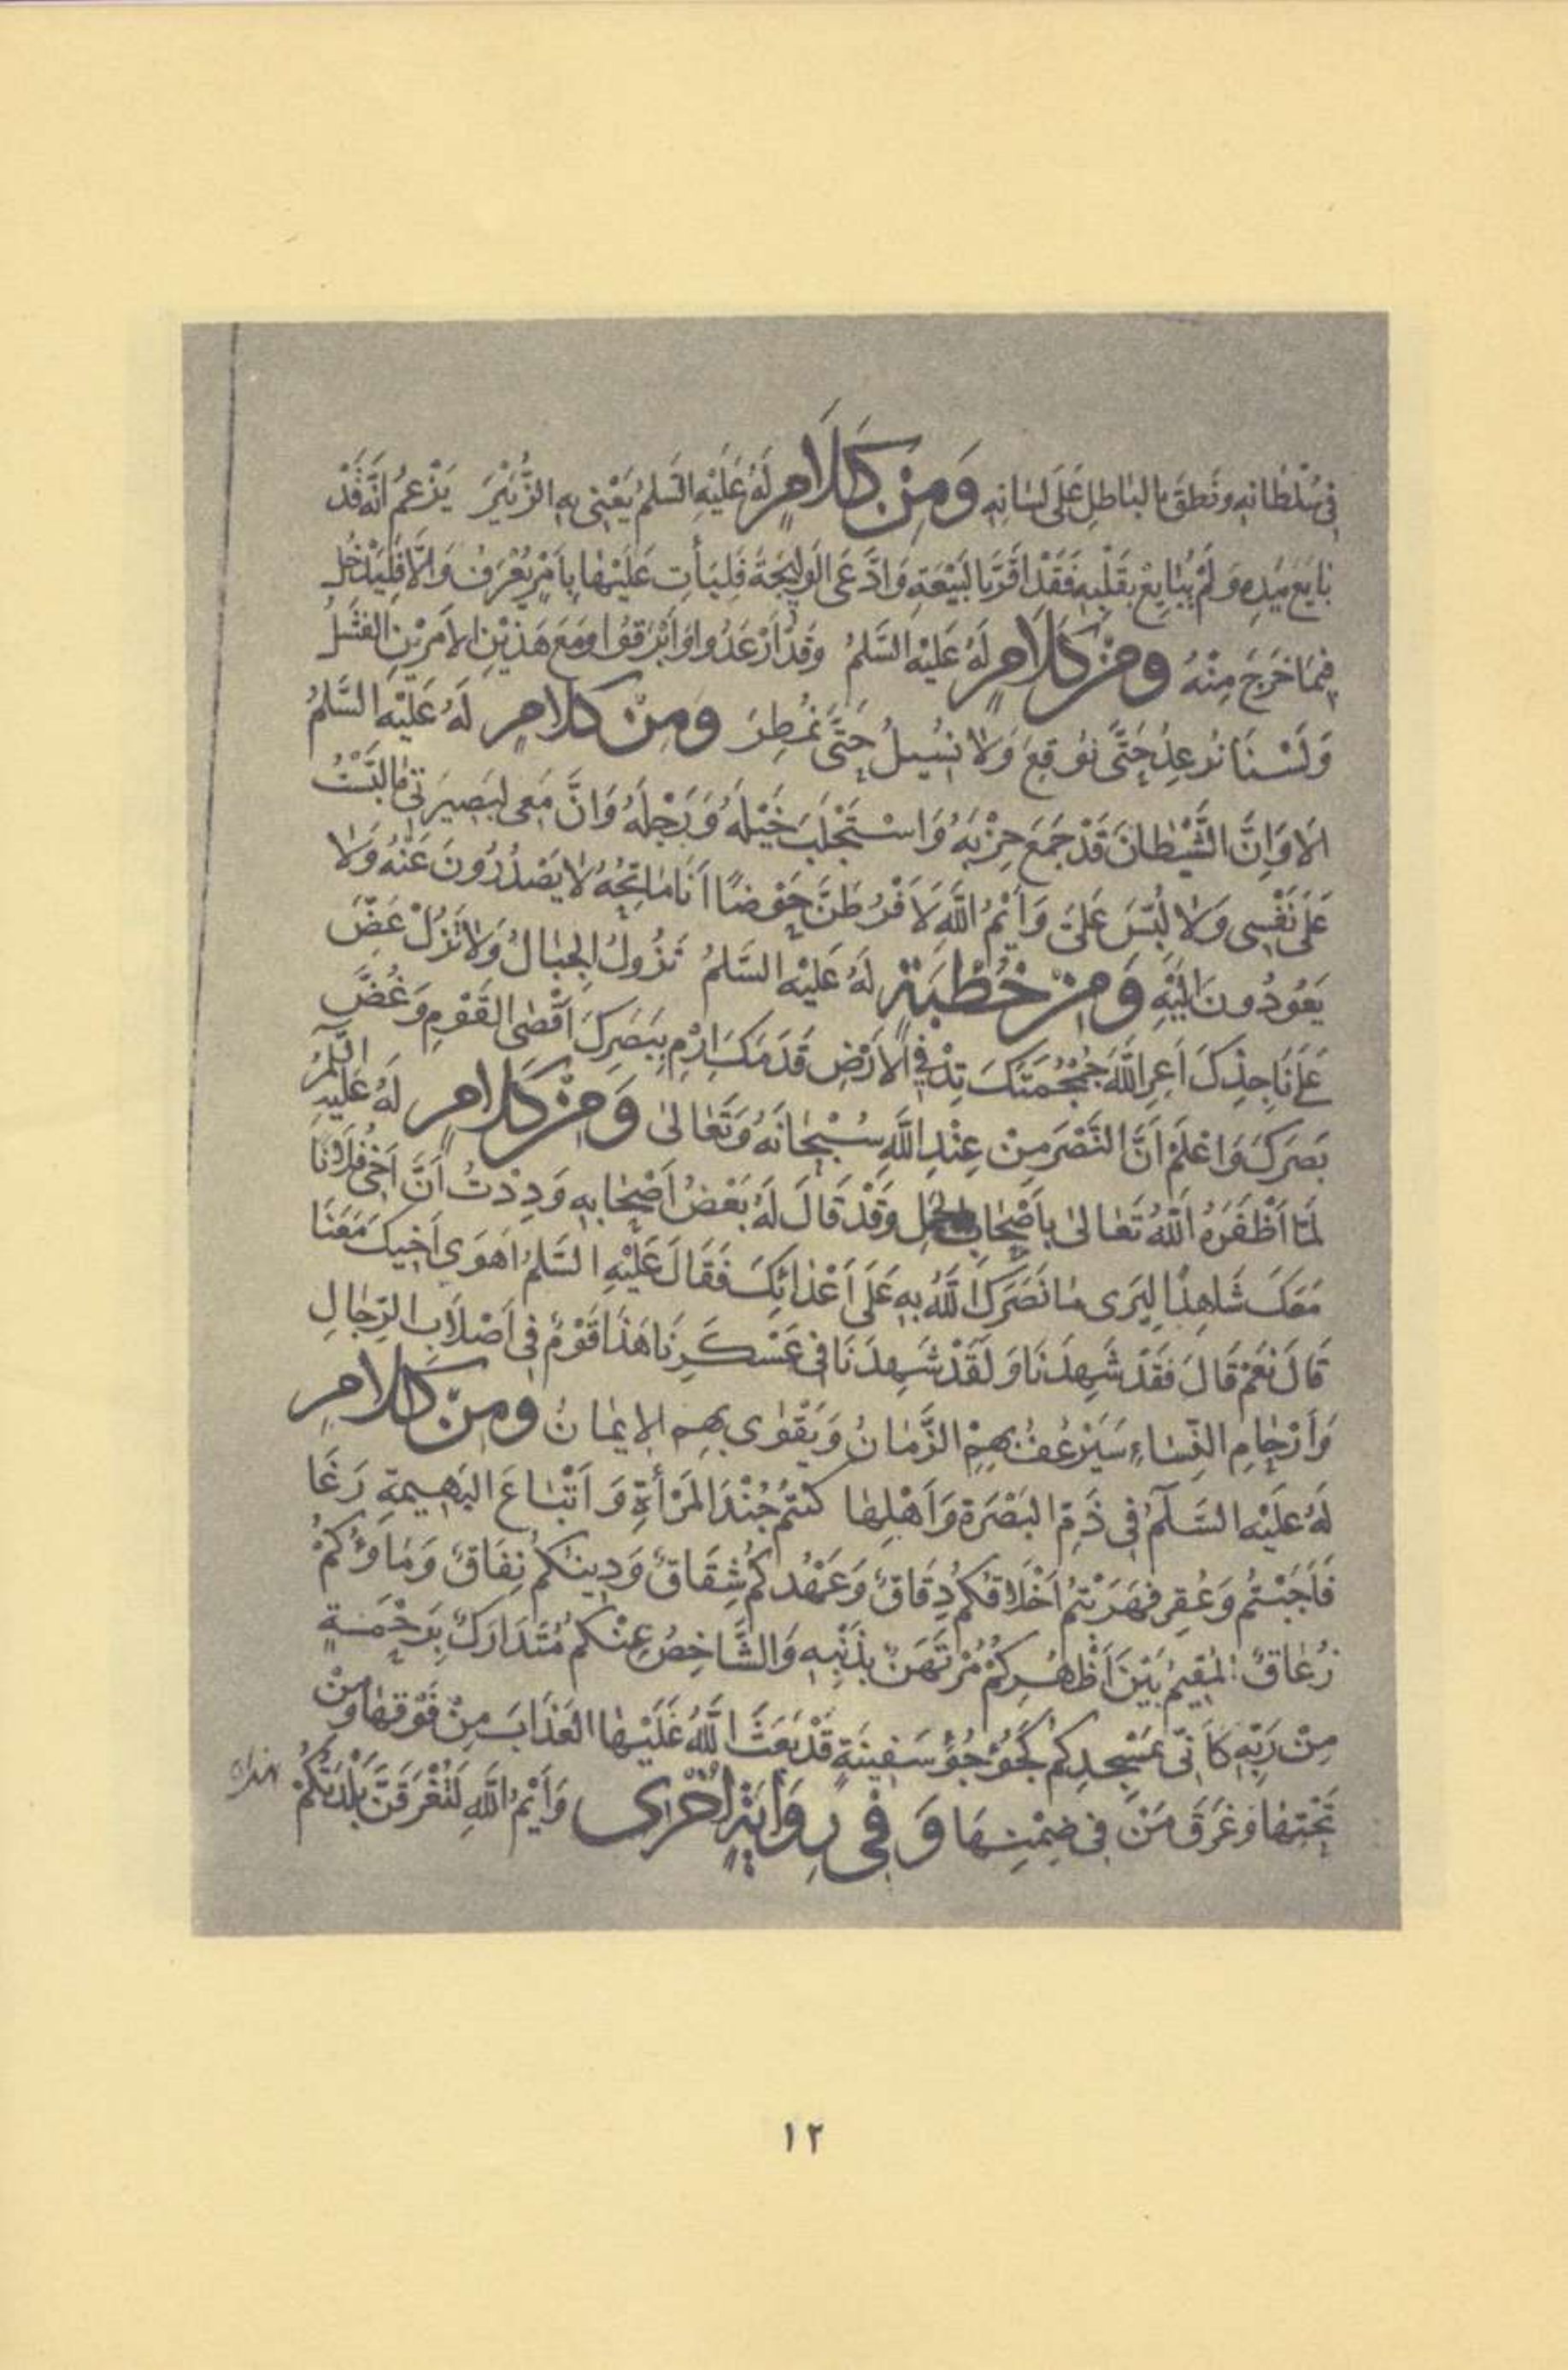 فِي سُلْطَانِهِ وَنَطَقَ بِالبَاطِلِ عَلَى لِسَانِهِ وَمِنْ كَلَامٍ لَهُ عَلَيْهِ السَّلمُ يَعْنِي بِهِ الزُّبَيْرَ يَزْعُمُ أَنَّهُ قَدْ
بَايَعَ بِيَدِهِ وَلَمْ يُبَايِعْ بِقَلْبِهِ فَقَدْ أَقَرَّ بِالبَيْعَةِ وَادَّعَى الوَلِيجَةَ فَلْيَأْتِ عَلَيْهَا بِأَمْرٍ يُعْرَفُ وَإِلَّا فَلْيَدْخُلْ
فِيمَا خَرَجَ مِنْهُ وَمِنْ كَلَامٍ لَهُ عَلَيْهِ السَّلمُ وَقَدْ أَرْعَدُوا وَأَبْرَقُوا وَمَعَ هَذَيْنِ الأَمْرَيْنِ الفَشَلُ
وَلَسْنَا نُرْعِدُ حَتَّى نُوقِعَ وَلَا نُسِيلُ حَتَّى نُمْطِرَ وَمِنْ كَلَامٍ لَهُ عَلَيْهِ السَّلمُ
أَلَا وَإِنَّ الشَّيْطَانَ قَدْ جَمَعَ حِزْبَهُ وَاسْتَجْلَبَ خَيْلَهُ وَرَجِلَهُ وَإِنَّ مَعِي لَبَصِيرَتِي مَا لَبَّسْتُ
عَلَى نَفْسِي وَلَا لُبِّسَ عَلَيَّ وَأَيْمُ اللَّهِ لَأُفْرِطَنَّ حَوْضًا أَنَا مَاتِحُهُ لَا يَصْدُرُونَ عَنْهُ وَلَا
يَعُودُونَ إِلَيْهِ وَمِنْ خُطْبَةٍ لَهُ عَلَيْهِ السَّلمُ تَزُولُ الجِبَالُ وَلَا تَزُلْ عَضَّ
عَلَى نَاجِذِكَ أَعِرِ اللَّهَ جُمْجُمَتَكَ تِدْ فِي الأَرْضِ قَدَمَكَ ارْمِ بِبَصَرِكَ أَقْصَى القَوْمِ وَغُضَّ
بَصَرَكَ وَاعْلَمْ أَنَّ النَّصْرَ مِنْ عِنْدِ اللَّهِ سُبْحَانَهُ وَتَعَالَى وَمِنْ كَلَامٍ لَهُ عَلَيْهِ السَّلمُ
لَمَّا أَظْفَرَهُ اللَّهُ تَعَالَى بِأَصْحَابِ الجَمَلِ وَقَدْ قَالَ لَهُ بَعْضُ أَصْحَابِهِ وَدِدْتُ أَنَّ أَخِي فُلَانًا
مَعَكَ شَاهِدًا لِيَرَى مَا نَصَرَكَ اللَّهُ بِهِ عَلَى أَعْدَائِكَ فَقَالَ عَلَيْهِ السَّلمُ أَهَوَى أَخِيكَ مَعَنَا
قَالَ نَعَمْ قَالَ فَقَدْ شَهِدَنَا وَلَقَدْ شَهِدَنَا فِي عَسْكَرِنَا هَذَا قَوْمٌ فِي أَصْلَابِ الرِّجَالِ
وَأَرْحَامِ النِّسَاءِ سَيَرْعُفُ بِهِمُ الزَّمَانُ وَيَقْوَى بِهِمِ الإِيمَانُ وَمِنْ كَلَامٍ
لَهُ عَلَيْهِ السَّلَمُ فِي ذَمِّ البَصْرَةِ وَأَهْلِهَا كُنْتُمْ جُنْدَ المَرْأَةِ وَأَتْبَاعَ البَهِيمَةِ رَغَا
فَأَجَبْتُمْ وَعُقِرَ فَهَرَبْتُمْ أَخْلَاقُكُمْ دِقَاقٌ وَعَهْدُكُمْ شِقَاقٌ وَدِينُكُمْ نِفَاقٌ وَمَاؤُكُمْ
زُعَاقٌ المُقِيمُ بَيْنَ أَظْهُرِكُمْ مُرْتَهَنٌ بِذَنْبِهِ وَالشَّاخِصُ عَنْكُمْ مُتَدَارَكٌ بِرَحْمَةٍ
مِنْ رَبِّهِ كَأَنِّي بِمَسْجِدِكُمْ كَجُؤْجُؤِ سَفِينَةٍ قَدْ بَعَثَ اللَّهُ عَلَيْهَا العَذَابَ مِنْ فَوْقِهَا وَمِنْ
تَحْتِهَا وَغَرَّقَ مَنْ فِي ضِمْنِهَا وَفِي رِوَايَةٍ أُخْرَى وَأَيْمُ اللَّهِ لَتَغْرَقَنَّ بَلْدَتُكُمْ
١٢